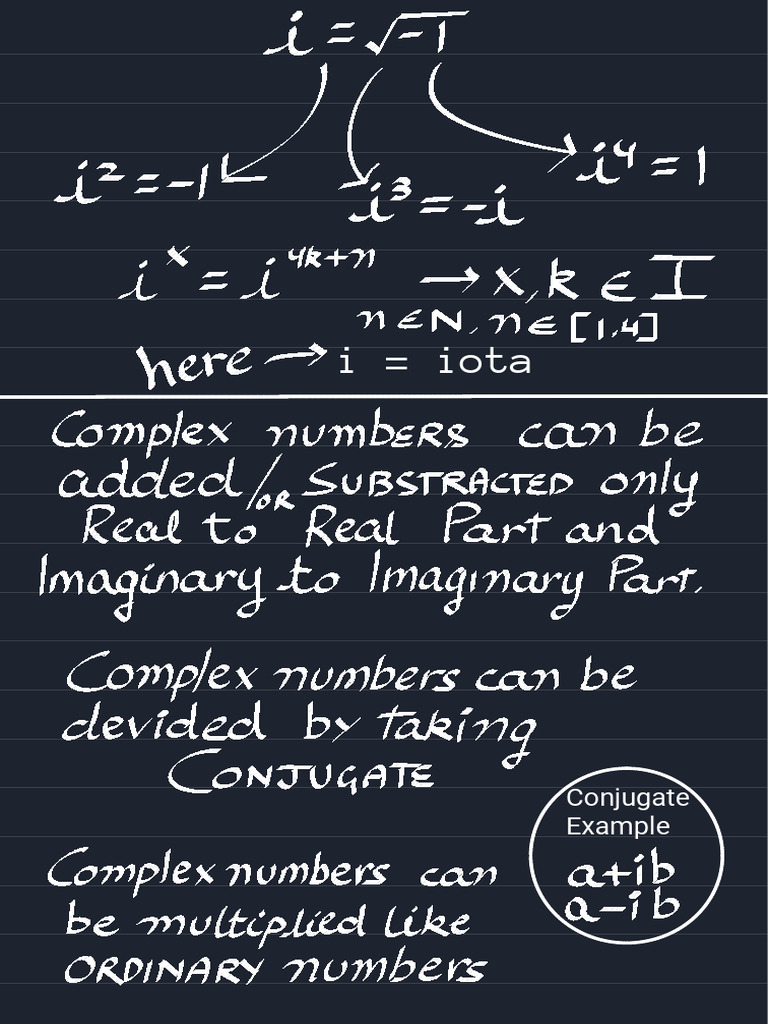 i = √-1
i² = -1
i³ = -i
i⁴ = 1
iˣ = i⁴ᵏ⁺ⁿ → x, k ∈ I
n ∈ N, n ∈ [1,4]
here → i = iota
Complex numbERS can be
added/OR SUBSTRACTED only
Real to Real Part and
Imaginary to Imaginary Part.
Complex numbers can be
devided by taking
CONJUGATE
Conjugate
Example
a+ib
a-ib
Complex numbers can
be multiplied like
ORDINARY numbers